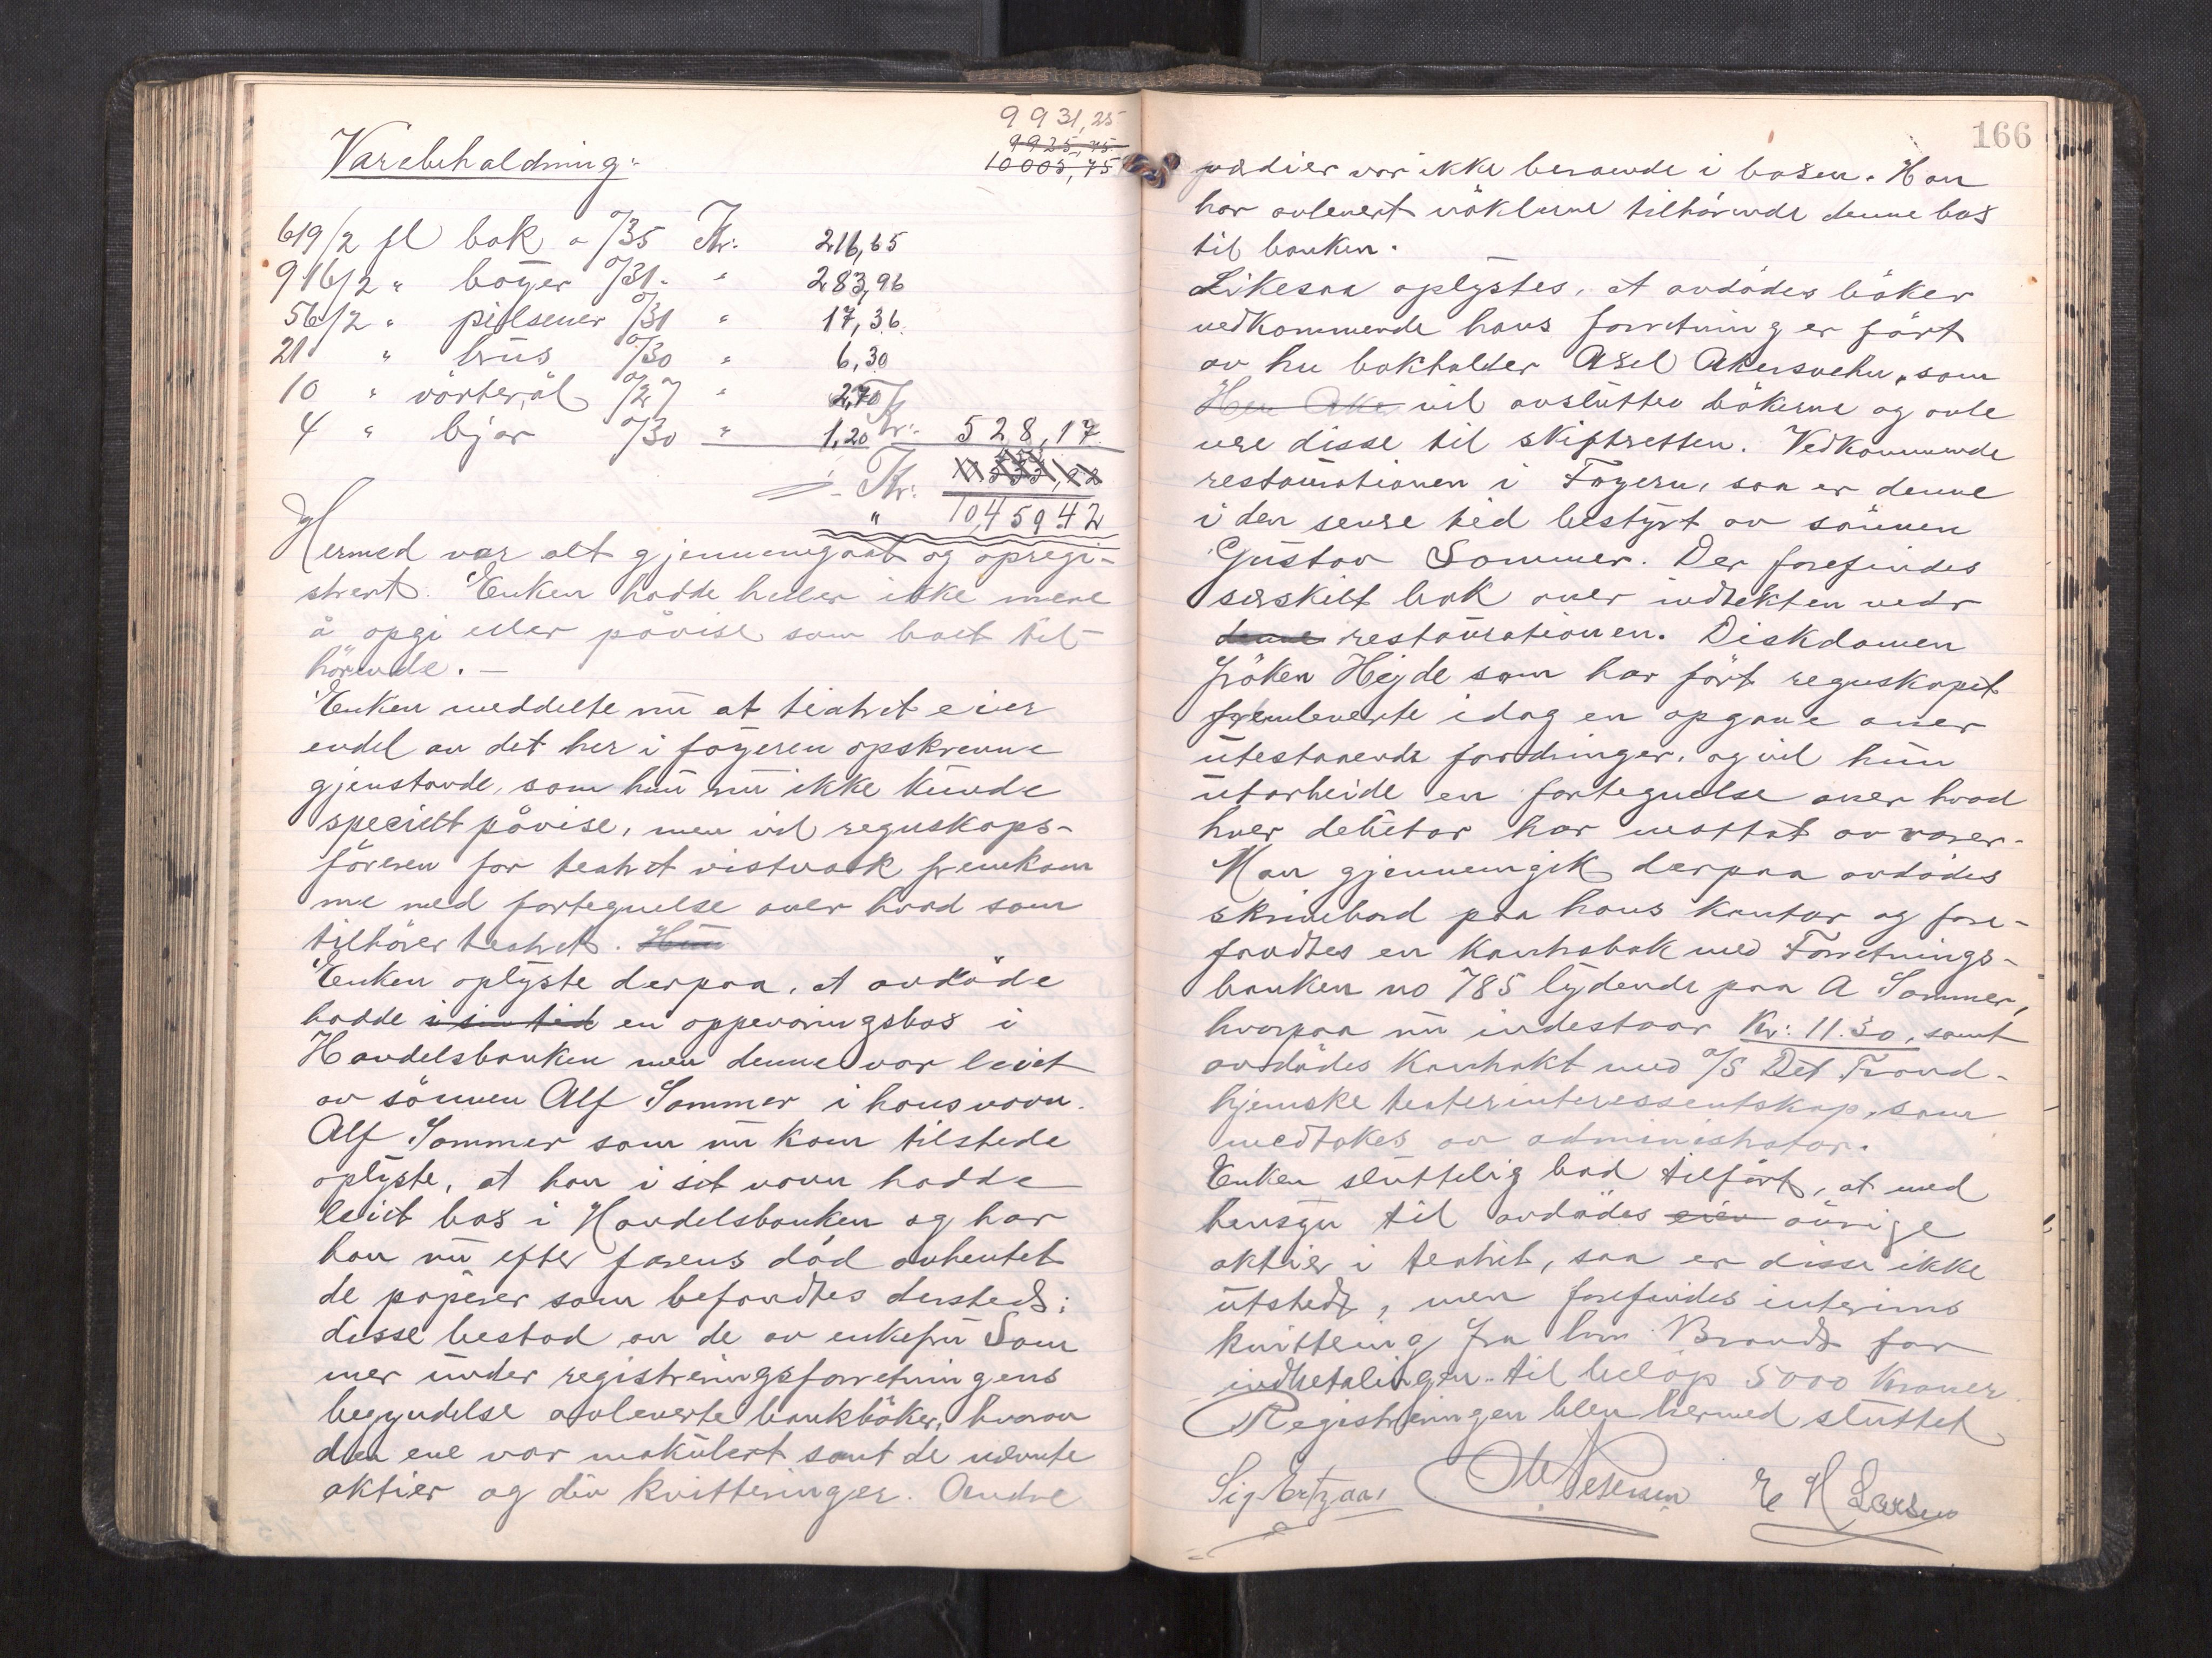 9931,25
9925,75
10005,75
Varebeholdning:
619/2 fl bok a 0/35 Kr: 216,65
916/2 " bayer 0/31 " 283,96
56/2 " pilsener 0/31 " 17,36
21 " brus 0/30 " 6,30
10 " vörterøl 0/27 " 2,70
4 " bjor 0/30 " 1,20 Kr: 528,17
Kr:
" 10,459.42
Hermed var alt gjennemgaat og opregi-
strert. Enken hadde heller ikke mere
å opgi eller påvise som boet til-
hörende. -
Enken meddelte nu at teatret eier
endel av det her i foyeren opskrevne
gjenstande, som hun nu ikke kunde
specielt påvise, men vil regnskaps-
föreren for teatret vistnok fremkom
me med fortegnelse over hvad som
tilhörer teatret. Hun
Enken oplyste derpaa, at avdöde
hadde i sin tid en oppevaringsbox i
Handelsbanken men denne var leiet
av sönnen Alf Sommer i hans navn.
Alf Sommer som nu kom tilstede
oplyste, at han i sit navn hadde
leiet box i Handelsbanken og har
han nu efter farens död avhentet
de papirer som befandtes dersteds;
disse bestod av de av enkefru Som
mer under registreringsforretningens
begyndelse avleverte bankböker, hvorav
den ene var makulert samt de nævnte
aktier og div kvitteringer. Andre
166
værdier var ikke beroende i boxen. Han
har avlevert nöklerne tilhörende denne box
til banken.
Likesaa oplystes, at avdödes böker
vedkommende hans forretning er fört
av hr bokholder Axel Akersvehn, som
Herr Ake vil avslutte bökerne og avle
vere disse til skifteretten. Vedkommende
restaurationen i Foyeren, saa er denne
i den senere tid bestyrt av sönnen
Gustav Sommer. Der forefindes
særskilt bok over indtekten vedr
denne restaurationen. Diskdamen
fröken Hejde som har fört regnskapet
fremleverte idag en opgave over
utestaaende fordringer, og vil hun
utarbeide en fortegnelse over hvad
hver debitor har mottat av varer.
Man gjennemgik derpaa avdödes
skrivebord paa hans kontor og fore-
fandtes en kontrabok med Forretnings-
banken no 785 lydende paa A Sommer,
hvorpaa nu indestaar Kr: 11.30, samt
avdödes kontrakt med A/S Det Trond-
hjemske teaterinteressentskap, som
medtokes av administrator.
Enken sluttelig bad tilfört, at med
hensyn til avdödes eien övrige
aktier i teatret, saa er disse ikke
utstedt, men forefindes interims
kvittering fra hrr. Brandt for
indbetalingen til belöp 5000 kroner
Registreringen blev hermed sluttet
Petersen E H Larsen